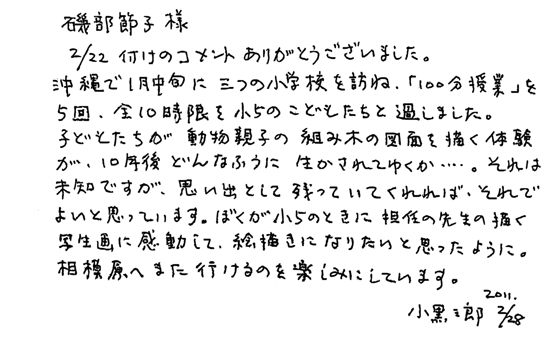 磯部節子様
2/22 付けのコメントありがとうございました。
沖縄で1月中旬に三つの小学校を訪ね、「100分授業」を
5回、全10時限を小5のこどもたちと過しました。
子どもたちが動物親子の組み木の図面を描く体験
が、10年後どんなふうに生かされてゆくか……。それは
未知ですが、思い出として残っていてくれれば、それで
よいと思っています。ぼくが小5のときに担任の先生の描く
写生画に感動して、絵描きになりたいと思ったように。
相模原へまた行けるのを楽しみにしています。
小黒三郎 2011. 2/28